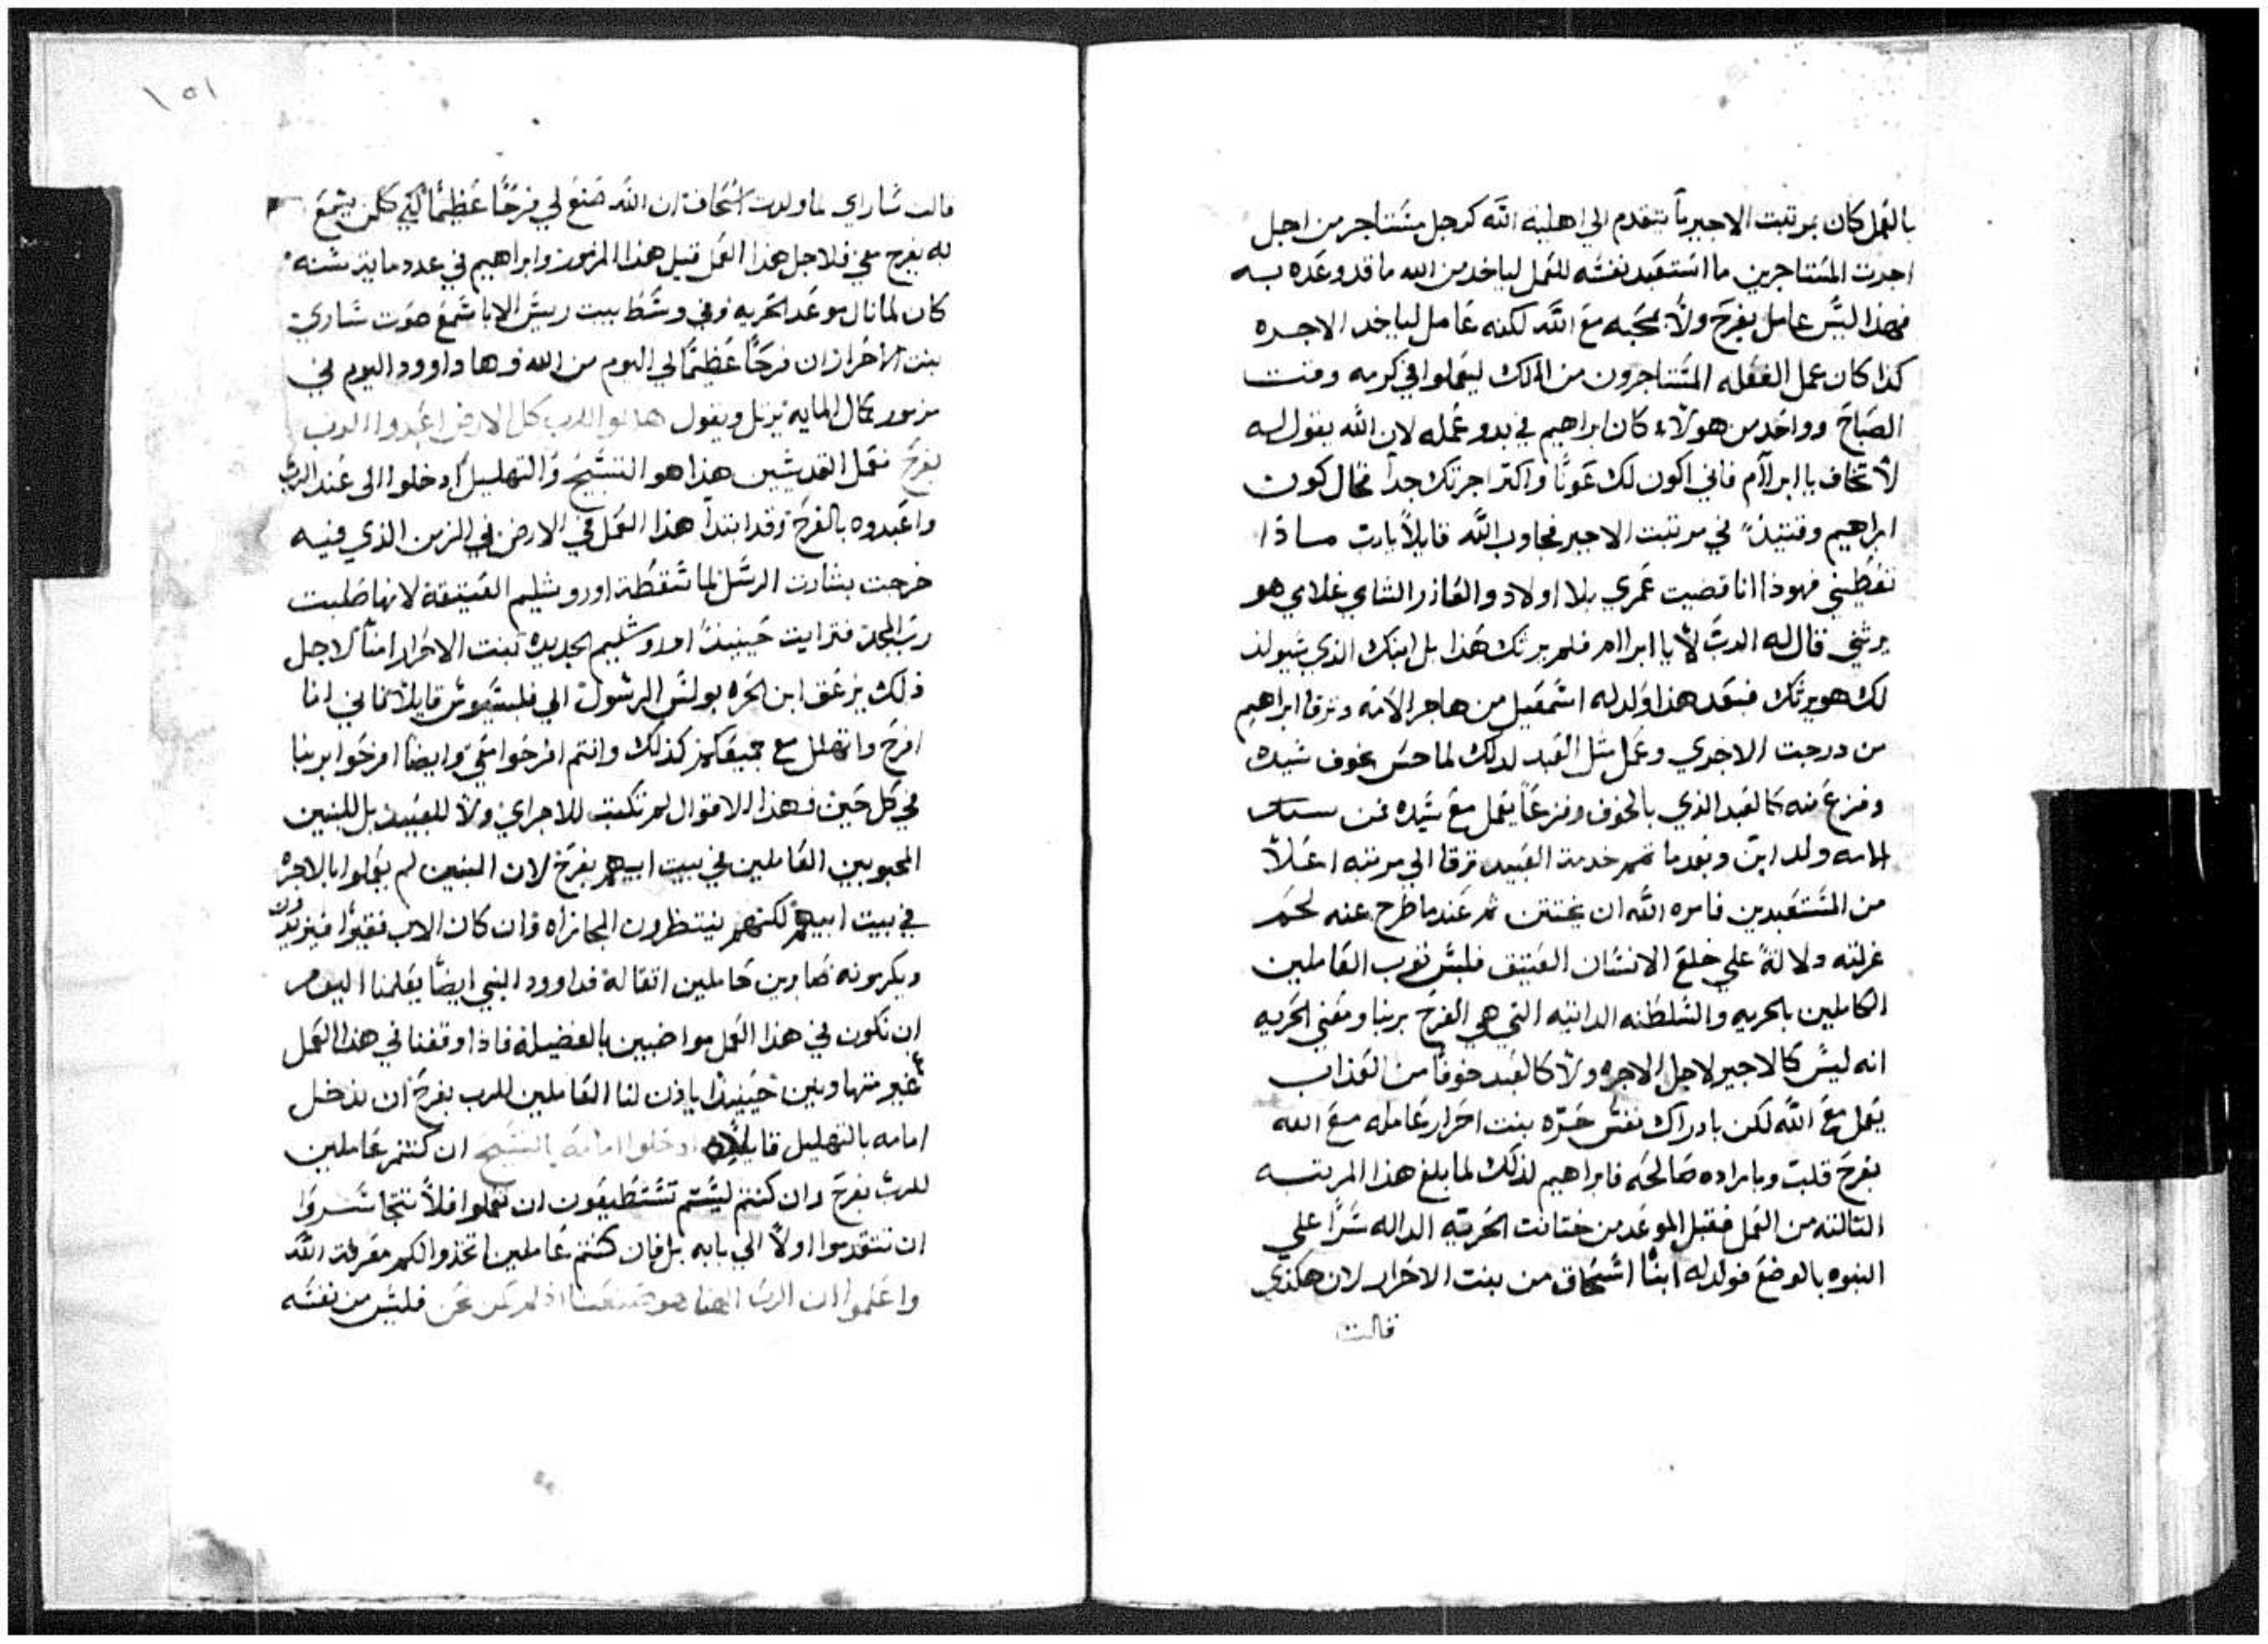 بالعمل كان بمرتبت الاجير يا يتقدم الي اهلية الله كرجل مستاجر من اجل
اجرت المستاجرين ما استعبد نفسه للعمل لياخد من الله ما قد وعده به
فهذا ليس عامل بفرح ولا بمحبه مع الله لكنه عامل لياخد الاجره
كذا كان عمل الفعله المستاجرون من الملك ليعملوا في كرمه وقت
الصباح وواحد من هولاء كان ابراهيم في بدو عمله لان الله يقول له
لا تخاف يا ابراآم فاني اكون لك عونا واكتر اجرتك جدا فحال كون
ابراهيم وقتيذ في مرتبت الاجير فجاوب الله قايلا يا رب ماذا
تعطيني فهوذا انا قضيت عمري بلا اولاد والعازر الشاي غلامي هو
يرثني قال له الرب لا يا ابراام فلم يرتك هذا بل ابنك الذي سيولد
لك هو يرتك فبعد هذا ولد له اسمعيل من هاجر الامه وترقا ابراهيم
من درجت الاجري وعمل مثل العبد لدلك لما حس بخوف سيده
وفزع منه كالعبد الذي بالخوف وفزعا يعمل مع سيده فمن
الامه ولد ابن وبعدما تمم خدمة العبيد ترقا الي مرتبه اعلا
من المستعبدين فامره الله ان يختتن ثم عندما طرح عنه لحم
غرلته دلالة علي خلع الانسان العتيق فلبس توب العاملين
الكاملين بالحريه والسلطنه الداتيه التي هي الفرح بربنا ومعني الحريه
انه ليس كالاجير لاجل الاجره ولا كالعبد خوفا من العذاب
يعمل مع الله لكن بادراك نفس حره بنت احرار عامله مع الله
بفرح قلب وبارادة صالحه فابراهيم لذلك لما بلغ هذا المرتبه
التالته من العمل فقبل الموعد من ختانت الحريه الداله سرا علي
البنوه بالوضع فولد له ابنا اسحاق من بنت الاحرار لان هكذي
قالت
١٥١
قالت ساراي لما ولدت اسحاق ان الله صنع لي فرحا عظيما لكي كلمن يسمع
به يفرح معي فلاجل هذا العمل قيل هذا المزمور وابراهيم في عدد ماية سنه
كان لما نال موعد الحريه وفي وسط بيت ريس الابا سمع صوت ساري
بنت الاحرار ان فرحا عظيما لي اليوم من الله وها داوود اليوم في
مزمور كمال المايه يرتل ويقول هللوا للرب كل الارض اعبدوا الرب
بفرح فعمل القديسين هذا هو التسبيح والتهليل ادخلوا الى عند الرب
واعبدوه بالفرح وقد ابتدا هذا العمل في الارض في الزمن الذي فيه
خرجت بشارت الرسل لما سقطة اوروشليم العتيقة لانها صلبت
رب المجد فترايت حينيذ اوروشليم الجديده بنت الاحرار امنا لاجل
ذلك يزعق ابن الحره بولس الرسول الي فلبسيوس قايلا فاني انا
افرح واتهلل مع جميعكم كذلك وانتم افرحوا معي وايضا افرحوا بربنا
في كل حين فهذا الاقوال لم تكتب للاجراي ولا للعبيد بل للبنين
المحبوبين العاملين في بيت ابيهم بفرح لان البنين لم يعملوا بالاجره
في بيت ابيهم لكنهم ينتظرون المجازاه وان كان الاب فقيرا فيزيدون
ويكرمونه صابرين حاملين اتقاله فداوود النبي ايضا يعلمنا اليوم
ان نكون في هذا العمل مواضبين بالفضيلة فاذا وقفنا في هذا العمل
غير متهاونين حينيذ ياذن لنا العاملين للرب بفرح ان ندخل
امامه بالتهليل قايلا ادخلوا امامه بالتسبيح ان كنتم عاملين
للرب بفرح وان كنتم ليستم تستطيعون ان تعملوا فلا تتجاسروا
ان تتقدموا اولا الي بابه بل فان كنتم عاملين اتخذوا لكم معرفة الله
واعلموا ان الرب الهنا هو صنعنا اذ لم نكن نحن فليس من نفسه